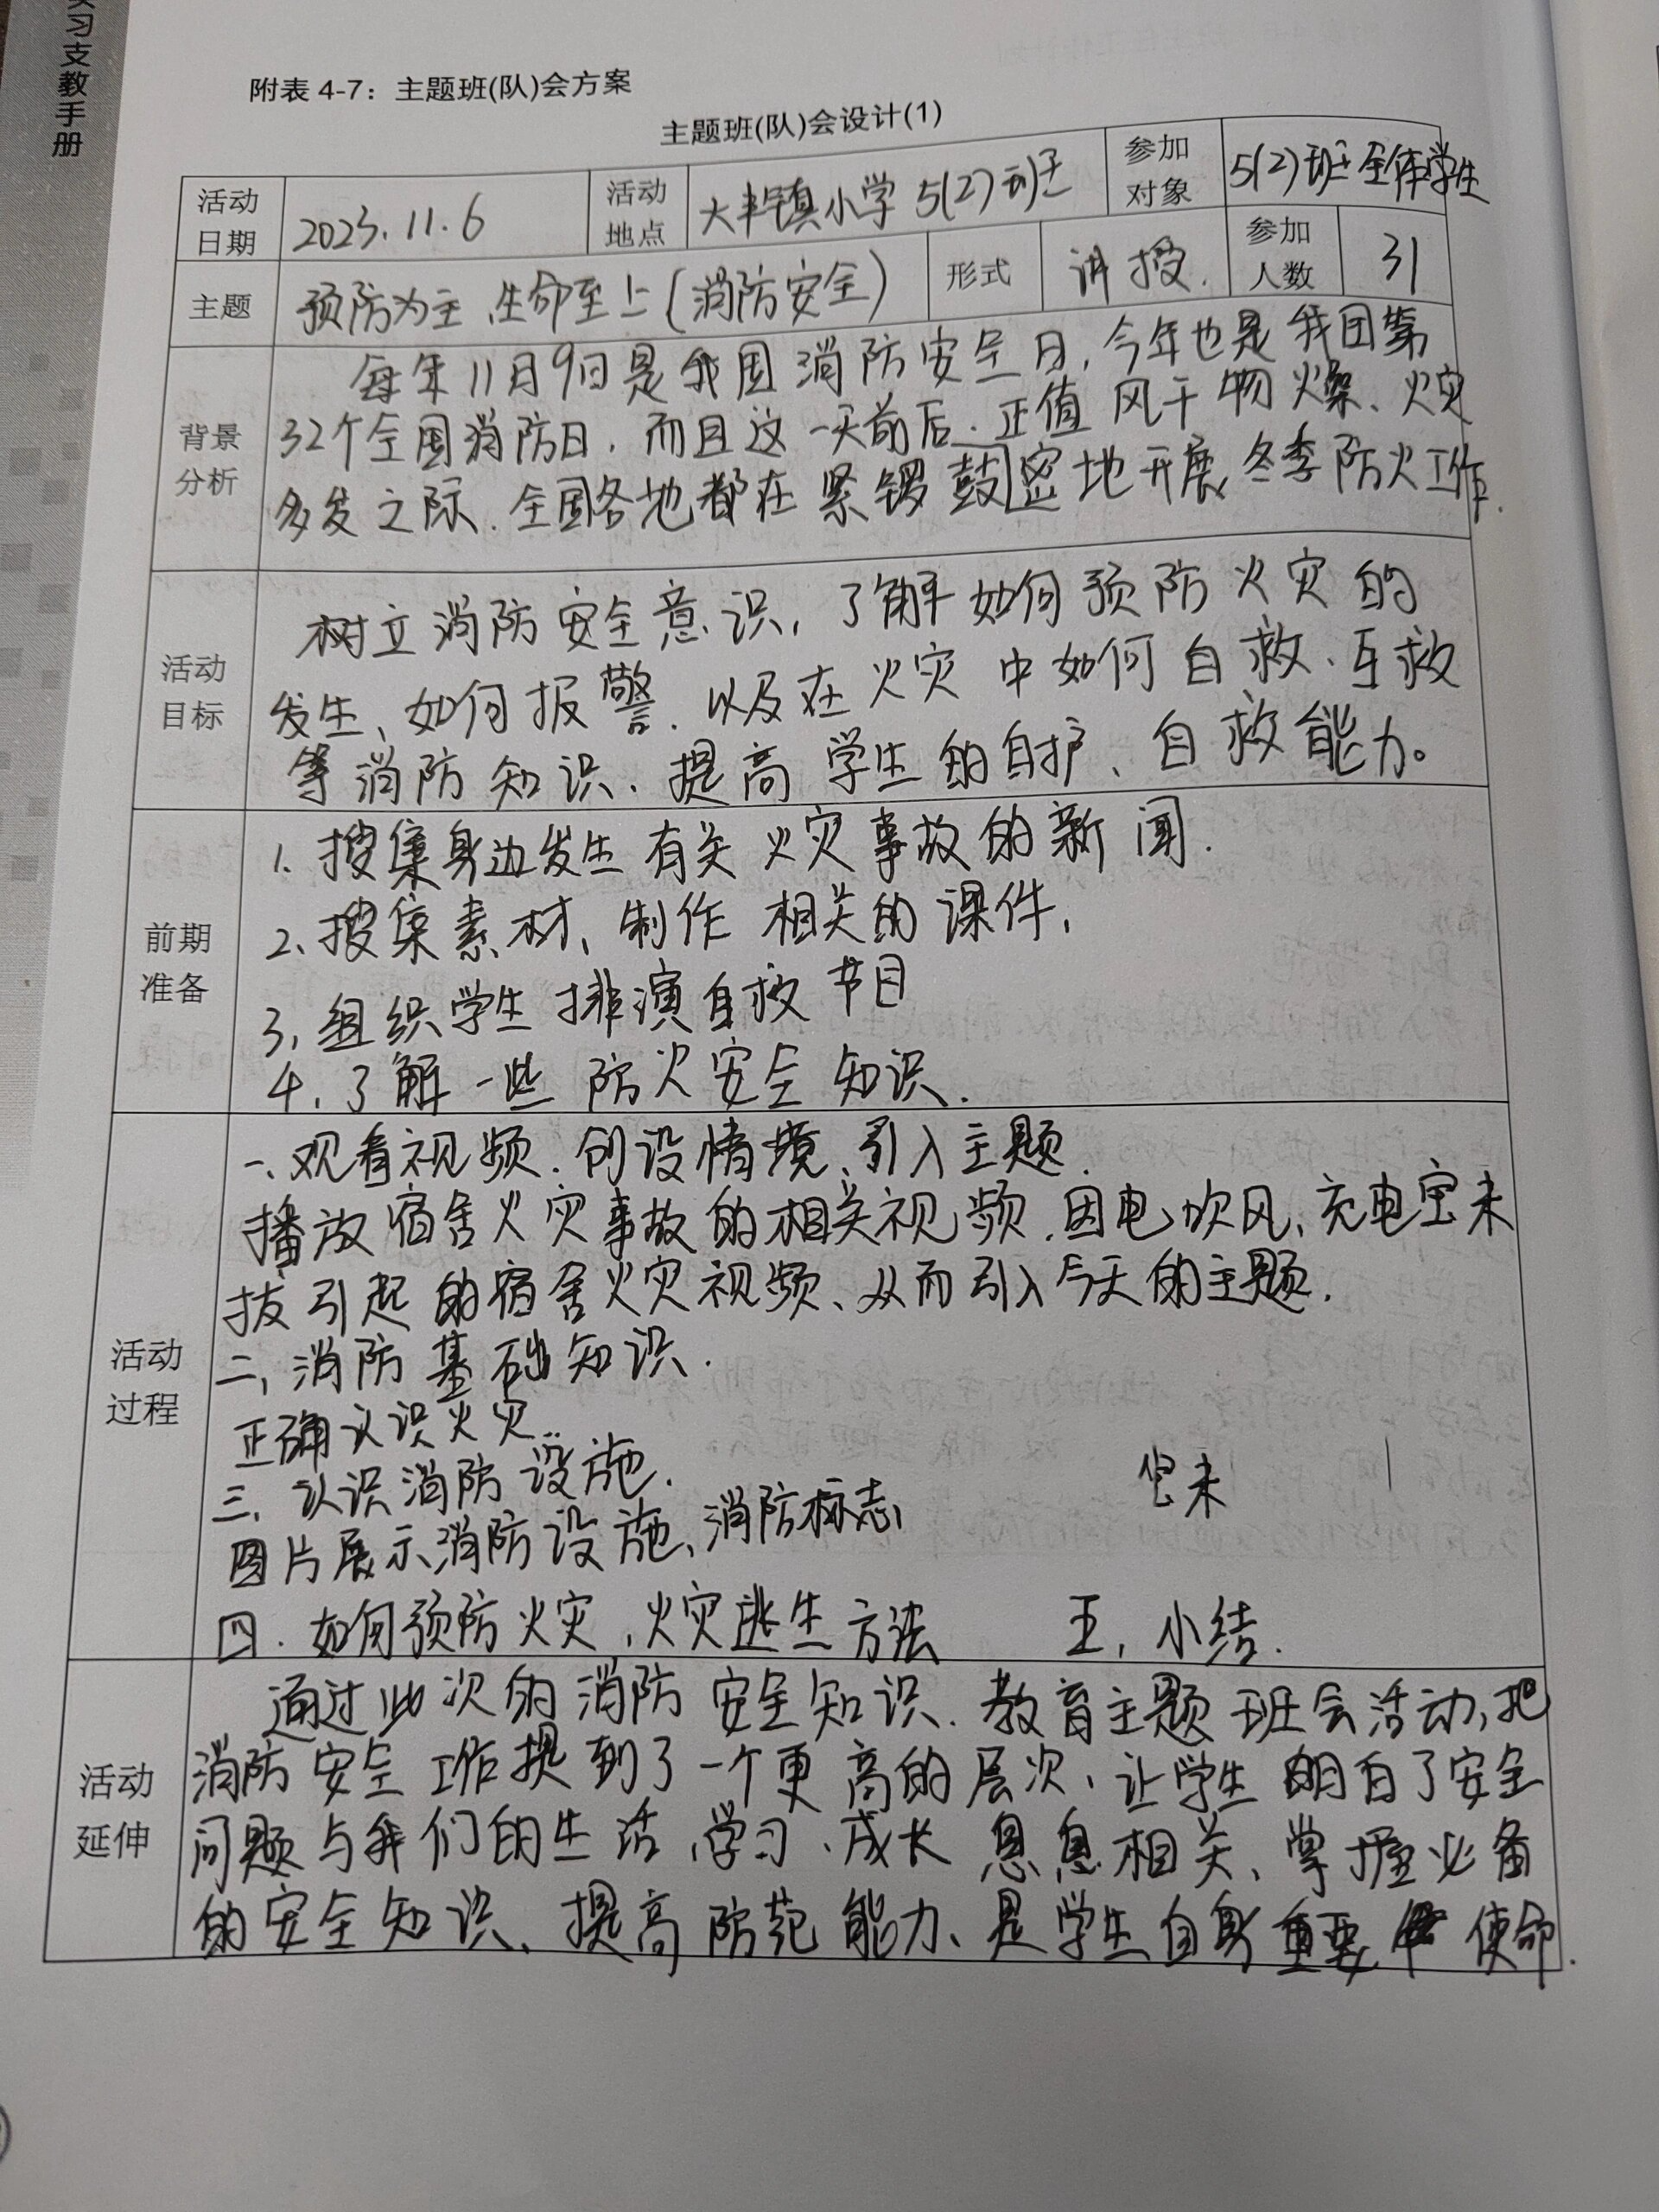 实习支教手册
附表 4-7：主题班(队)会方案
主题班(队)会设计(1)
活动日期 2023.11.6 活动地点 大丰镇小学 5(2)班 参加对象 5(2)班全体学生
主题 预防为主、生命至上(消防安全) 形式 讲授. 参加人数 31
背景分析
每年11月9日是我国消防安全日,今年也是我国第
32个全国消防日.而且这一天前后.正值风干物燥、火灾
多发之际.全国各地都在紧锣鼓密地开展冬季防火工作.
活动目标
树立消防安全意识,了解如何预防火灾的
发生、如何报警.以及在火灾中如何自救、互救
等消防知识.提高学生的自护、自救能力。
前期准备
1.搜集身边发生有关火灾事故的新闻.
2.搜集素材、制作相关的课件,
3,组织学生排演自救节目
4,了解一些防火安全知识.
活动过程
一、观看视频.创设情境、引入主题.
播放宿舍火灾事故的相关视频.因电吹风、充电宝未
拔引起的宿舍火灾视频、从而引入今天的主题.
二,消防基础知识.
正确认识火灾.
三,认识消防设施.
图片展示消防设施、消防标志
四.如何预防火灾,火灾逃生方法 五,小结.
活动延伸
通过此次的消防安全知识.教育主题班会活动,把
消防安全工作提到了一个更高的层次、让学生明白了安全
问题与我们的生活、学习、成长息息相关、掌握必备
的安全知识、提高防范能力、是学生自身重要使命.